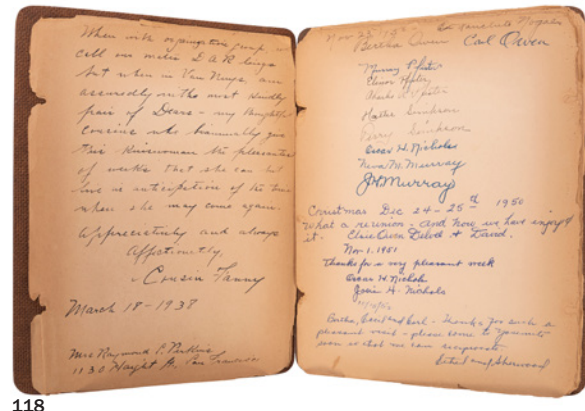 When with organization group, we
call our mates D A R lings
but when in Van Nuys, am
assuredly with the most kindly
pair of Dears - my thoughtful
cousins who biannually give
this kinswoman the pleasantest
of weeks that she can but
live in anticipation of the time
when she may come again.
Appreciatively and always
Affectionately,
Cousin Fanny
March 18 - 1938
Mrs Raymond C. Perkins
1130 Haight St. San Francisco
Nov 23
Bertha Owen Carl Owen
Murray Pfister
Elinor Pfister
Charles Pfister
Hattie Simpson
Perry Simpson
Oscar H. Nichols
Neva M. Murray
J H Murray
Christmas Dec 24 - 25th 1950
What a reunion - and how we have enjoyed
it - Elsie Owen David
Nov. 1. 1951
Thanks for a very pleasant week
Oscar H. Nichols
Josie H. Nichols
Bertha, Cecil and Carl - Thanks for such a
pleasant visit - please come to Yosemite
soon so that we can reciprocate.
Sherwood
118